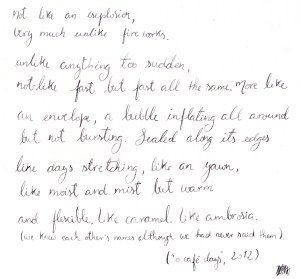 not like an explosion,
very much unlike fireworks.
unlike anything too sudden,
not like fast but fast all the same. More like
an envelope, a bubble inflating all around
but not bursting. Sealed along its edges
like days stretching, like an yawn,
like moist and mist but warm
and flexible. Like caramel. Like ambrosia.
(we knew each other's names although we had never said them).
café days", 2012)